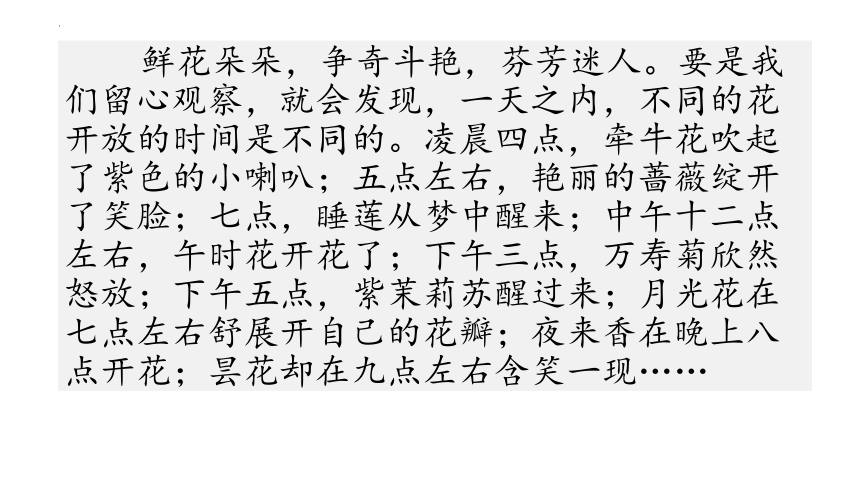 鲜花朵朵，争奇斗艳，芬芳迷人。要是我
们留心观察，就会发现，一天之内，不同的花
开放的时间是不同的。凌晨四点，牵牛花吹起
了紫色的小喇叭；五点左右，艳丽的蔷薇绽开
了笑脸；七点，睡莲从梦中醒来；中午十二点
左右，午时花开花了；下午三点，万寿菊欣然
怒放；下午五点，紫茉莉苏醒过来；月光花在
七点左右舒展开自己的花瓣；夜来香在晚上八
点开花；昙花却在九点左右含笑一现……